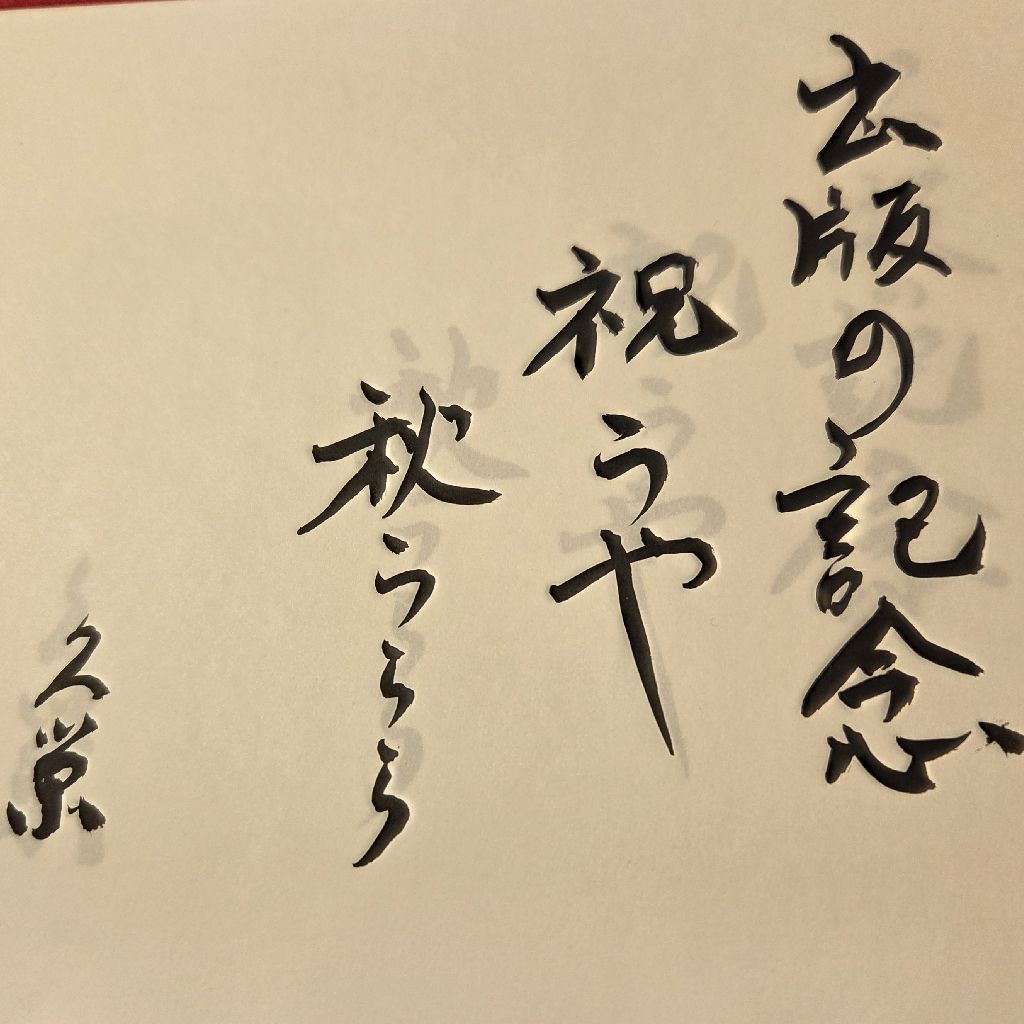 出版の記念
祝うや
秋うらら
久栄